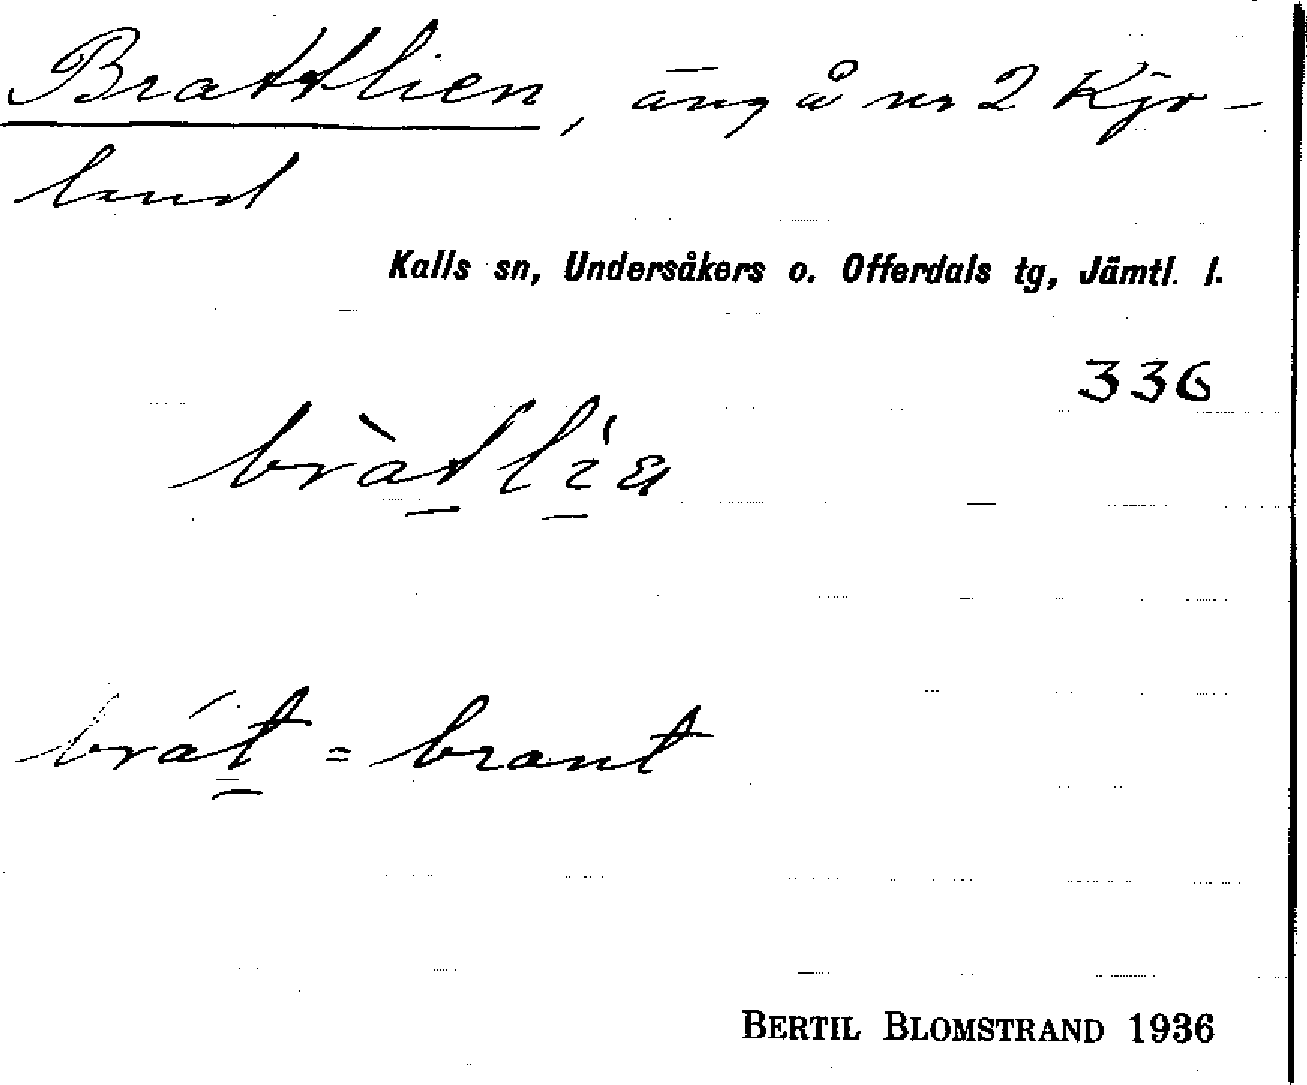 Brattlien, äng å nr 2 Kjr-
land
Kalls sn, Undersåkers o. Offerdals tg, Jämtl. l.
336
bràt lı̍a
brát = brant
BERTIL BLOMSTRAND 1936